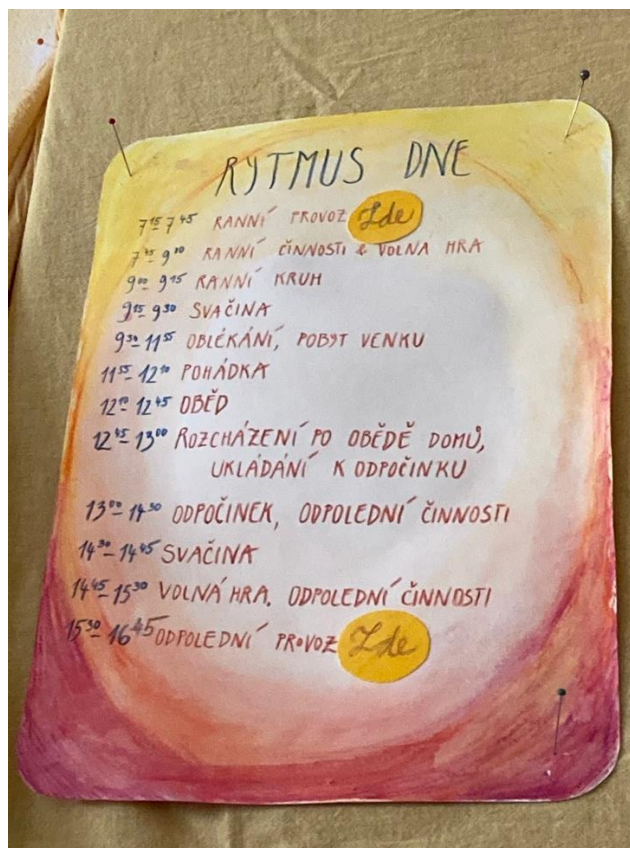 RYTMUS DNE
7¹⁵- 7⁴⁵ RANNÍ PROVOZ Zde
7⁴⁵- 9⁰⁰ RANNÍ ČINNOSTI & VOLNÁ HRA
9⁰⁰- 9¹⁵ RANNÍ KRUH
9¹⁵- 9³⁰ SVAČINA
9³⁰- 11⁵⁵ OBLÉKÁNÍ, POBYT VENKU
11⁵⁵- 12¹⁰ POHÁDKA
12¹⁰- 12⁴⁵ OBĚD
12⁴⁵- 13⁰⁰ ROZCHÁZENÍ PO OBĚDĚ DOMŮ,
UKLÁDÁNÍ K ODPOČINKU
13⁰⁰- 14³⁰ ODPOČINEK, ODPOLEDNÍ ČINNOSTI
14³⁰- 14⁴⁵ SVAČINA
14⁴⁵- 15³⁰ VOLNÁ HRA, ODPOLEDNÍ ČINNOSTI
15³⁰- 16⁴⁵ ODPOLEDNÍ PROVOZ Zde